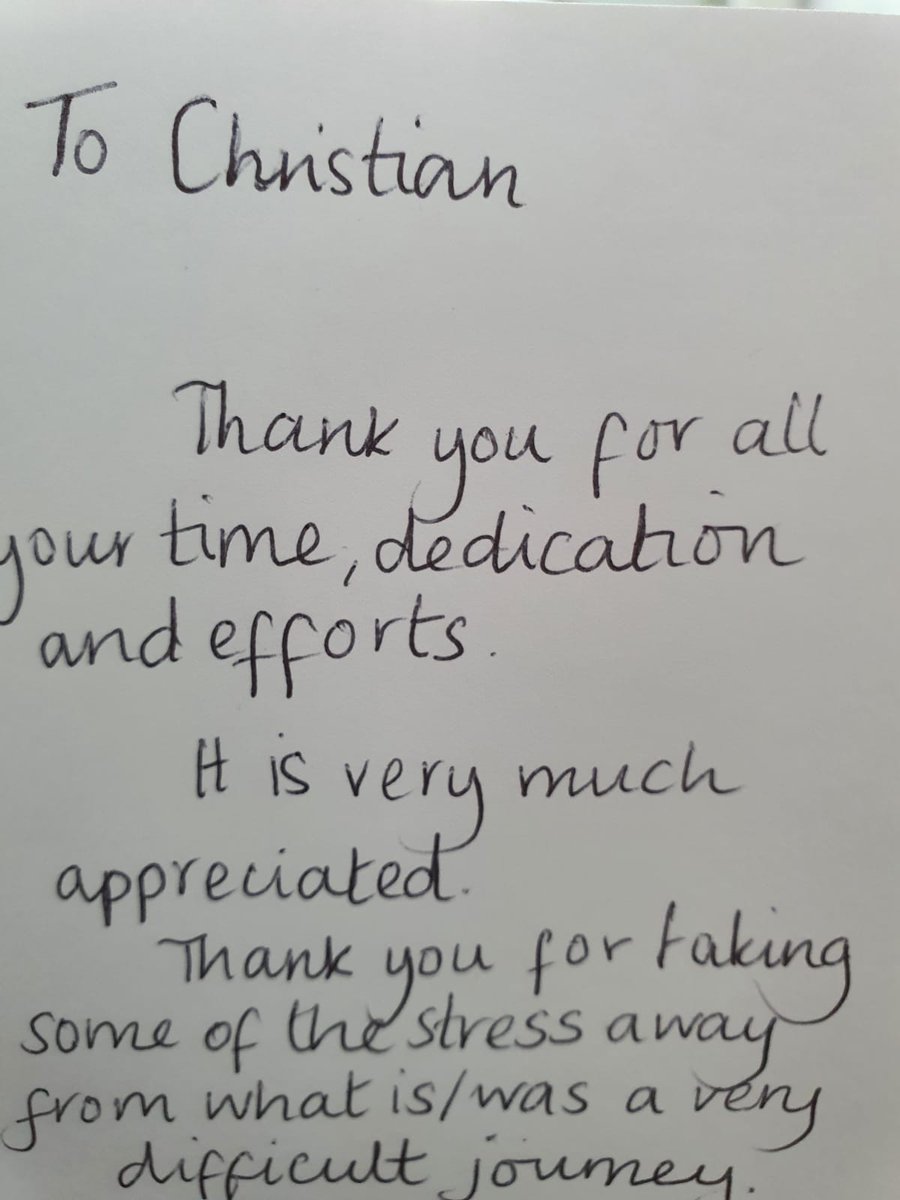 To Christian
Thank you for all
your time, dedication
and efforts.
It is very much
appreciated.
Thank you for taking
some of the stress away
from what is/was a very
difficult journey.